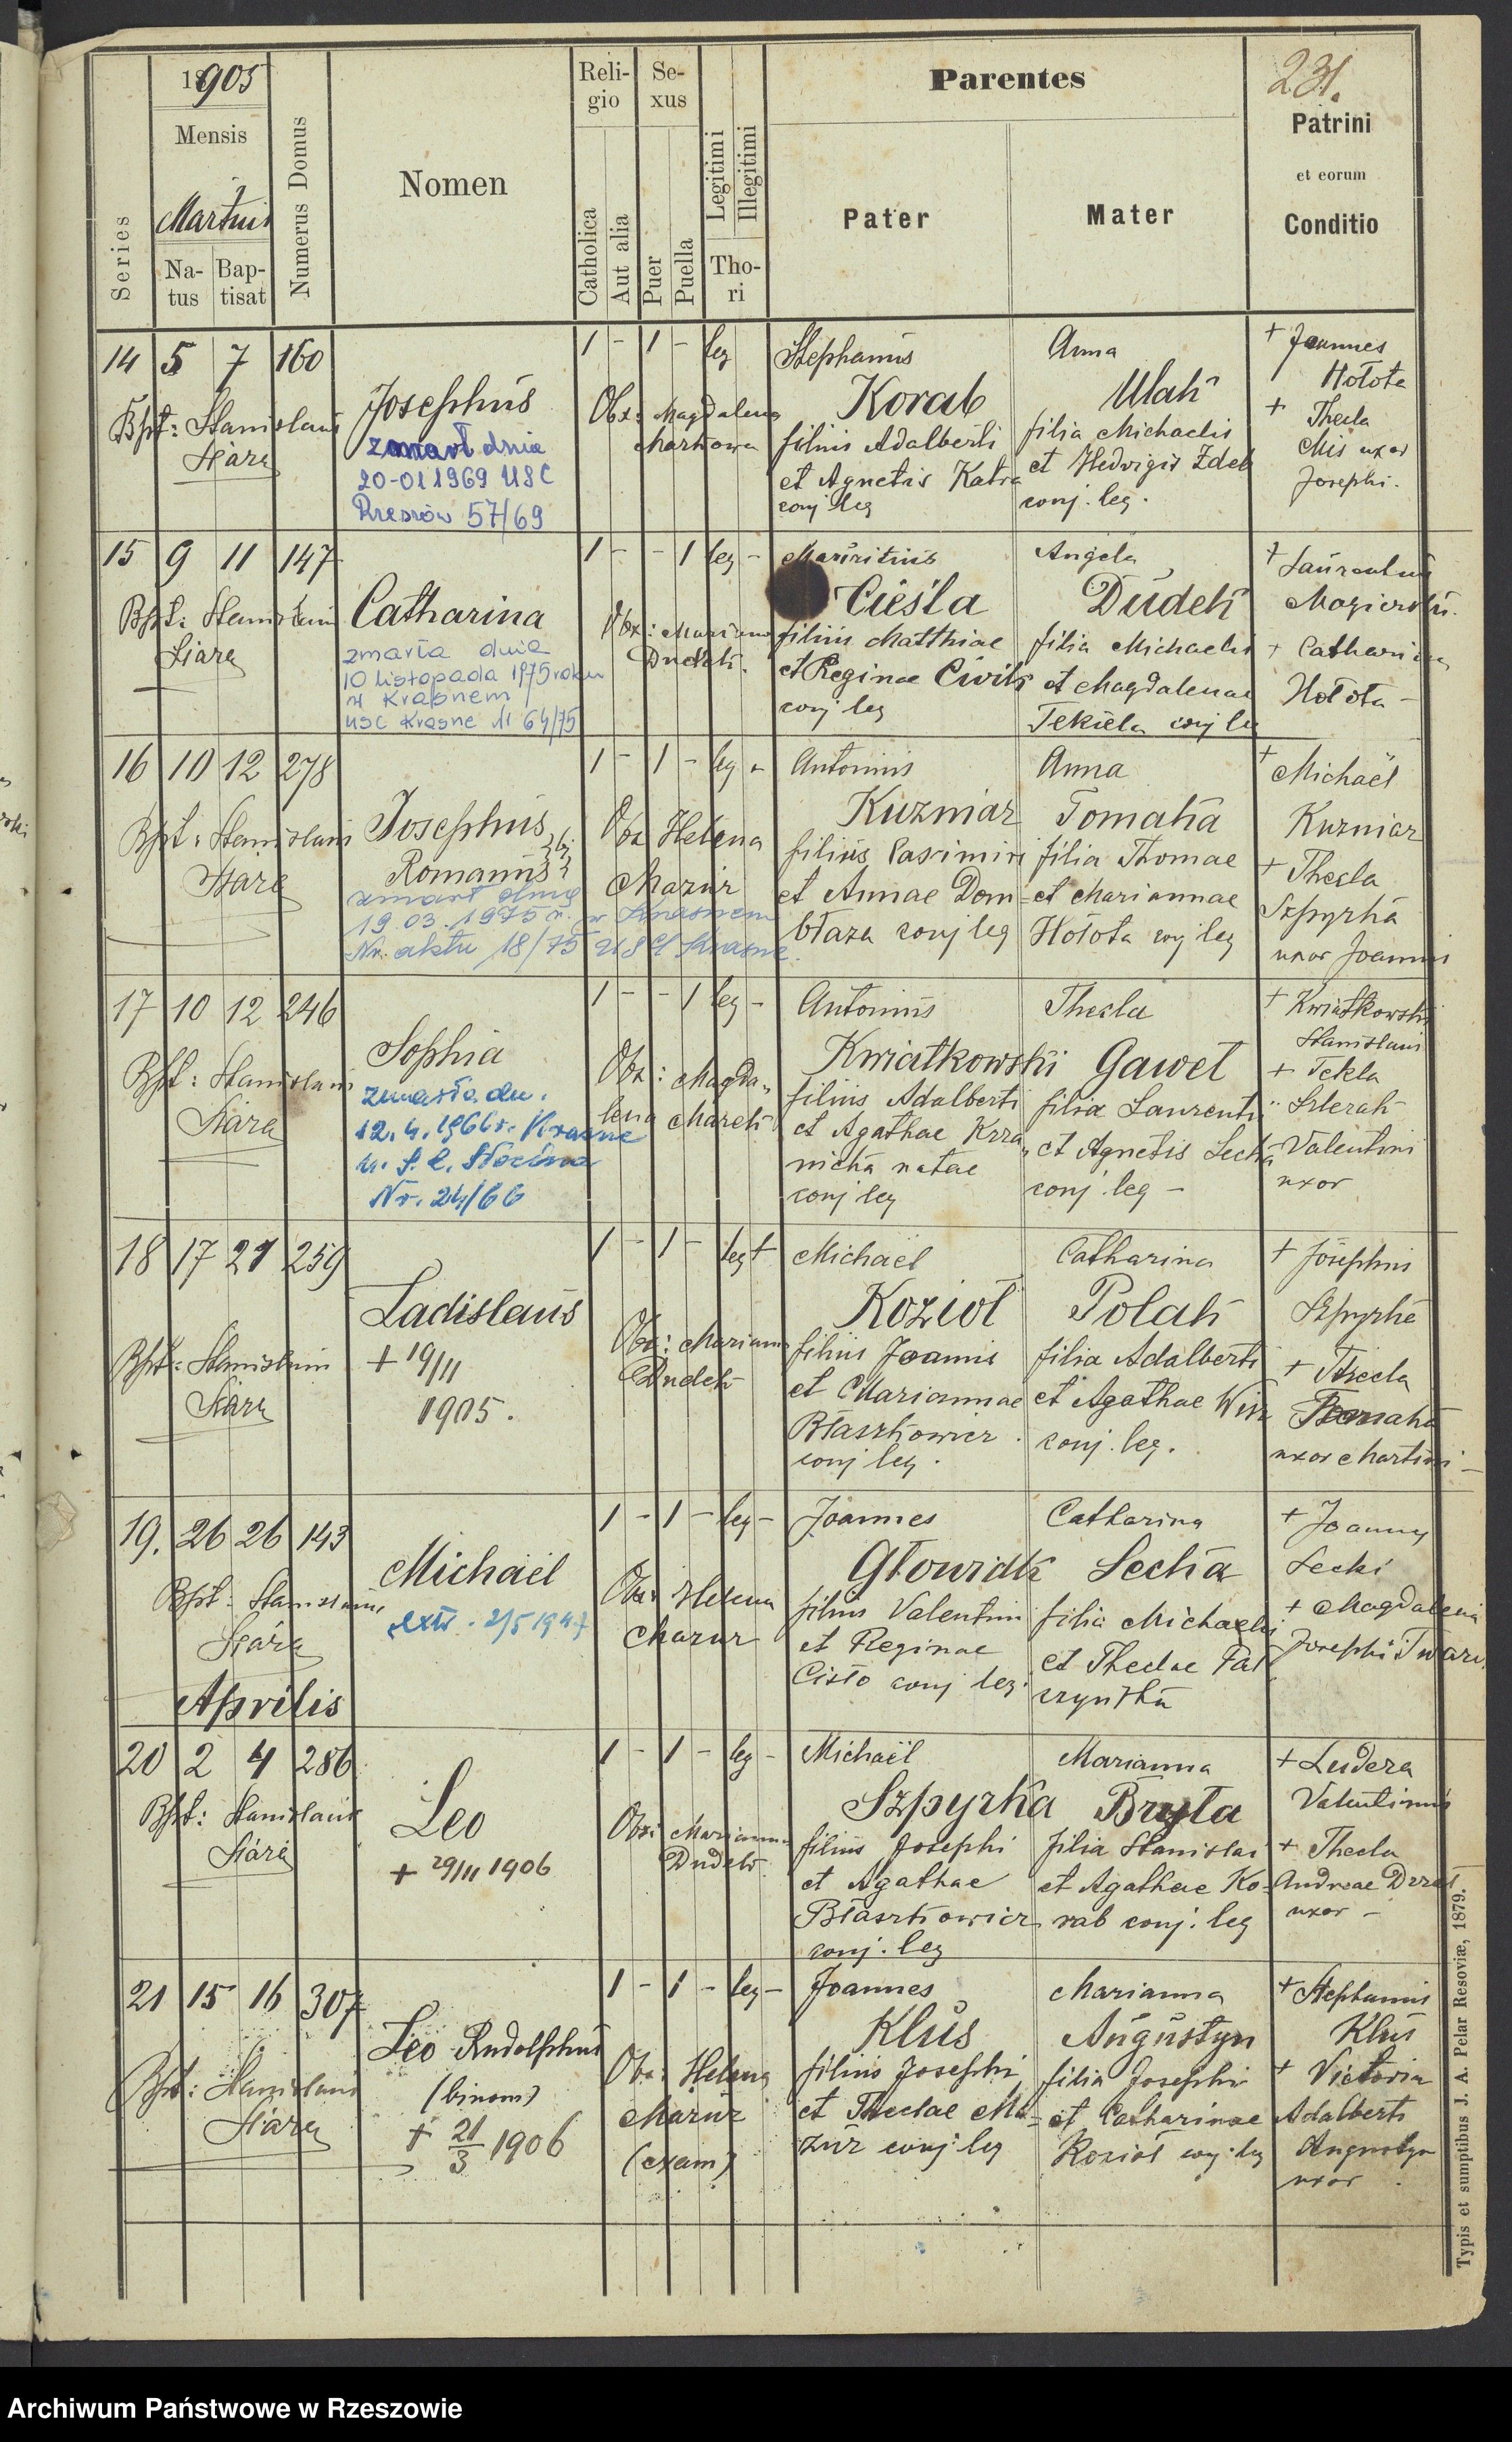 1905
231.
Series
Mensis
Martius
Na-
tus
Bap-
tisat
Numerus Domus
Nomen
Reli-
gio
Catholica
Aut alia
Se-
xus
Puer
Puella
Legitimi
Illegitimi
Tho-
ri
Parentes
Pater
Mater
Patrini
et eorum
Conditio
14 5 7 160
Bpt: Stanislaus
Josephus
zmarł dnia
20-01 1969 USC
Rzeszów 57/69
1 - 1 - leg
Obx: Magdalena
Markowa
Stephanus
Korab
filius Adalberti
et Agnetis Katra
conj leg
Anna
Ulak
filia Michaelis
et Hedvigis Zdeb
conj. leg.
+ Joannes
Hołota
+ Thecla
Mis uxor
Josephi.
15 9 11 147
Bpt: Stanislaus
Catharina
zmarła dnia
10 listopada 1975 roku
w Krasnem
USC Krasne N 64/75
1 - - 1 leg -
Obx: Marianna
Dudek
Mauritius
Cieśla
filius Matthiae
et Reginae
conj leg
Angela
Dudek
filia Michaelis
et Magdalenae
Tekiela conj leg
+ Laurentius
+ Catharina
Hołota -
16 10 12 278
Bpt: Stanislaus
Josephus
Romanus
zmarł dnia
19.03.1975 r. w Krasnem
Nr. aktu 18/75 USC Krasne.
1 - 1 - leg -
Obx Helena
Mazur
Antonius
Kuzniar
filius Casimiri
et Annae Dom-
błaza conj leg
Anna
Tomaka
filia Thomae
et Mariannae
Hołota conj leg
+ Michael
Kuzniar
+ Thecla
Szpyrka
uxor Joannis
17 10 12 246
Bpt: Stanislaus
Sophia
zmarła dn.
12.4.1966 r. Krasne
Nr. 24/66
1 - - 1 leg -
Obx: Magda-
lena Marek
Antonius
Kwiatkowski
filius Adalberti
et Agathae Krza-
nicka natae
conj leg
Thecla
Gaweł
filia Laurentii
et Agnetis Lecka
conj. leg -
+ Kwiatkowski
Stanislaus
+ Tekla
Valentini
uxor
18 17 21 259
Bpt: Stanislaus
Ladislaus
+ 19/11
1905.
1 - 1 - leg +
Obx: Marianna
Dudek
Michael
Kozioł
filius Joannis
et Mariannae
Błaszkowicz
conj leg.
Catharina
Polak
filia Adalberti
et Agathae
conj. leg.
+ Josephus
Szpyrka
+ Thecla
Tomaka
uxor Martini -
19. 26 26 143
Bpt: Stanislaus
Michael
extr. 2/5 1947
1 - 1 - leg -
Obx: Helena
Mazur
Joannes
filius Valentini
et Reginae
Cisło conj leg.
Catharina
Lecka
filia Michaelis
et Theclae Pał
czyńska
+ Joannes
Lecki
+ Magdalena
Josephi
Aprilis
20 2 4 286
Bpt: Stanislaus
Leo
+ 29/11 1906
1 - 1 - leg -
Obx: Marianna
Dudek
Michaël
Szpyrka
filius Josephi
et Agathae
Błaszkowicz
conj. leg
Marianna
Bryła
filia Stanislai
et Agathae Ko-
rab conj. leg
+ Ludera
Valentinus
+ Thecla
Andreae
uxor -
21 15 16 307
Bpt: Stanislaus
Leo Rudolphus
(binom)
+ 21/3 1906
1 - 1 - leg -
Obx: Helena
Mazur
(exam)
Joannes
Kluś
filius Josephi
et Theclae Ma-
zur conj. leg
Marianna
Augustyn
filia Josephi
et Catharinae
Kozioł conj. leg
+ Stephanus
Kluś
+ Victoria
Adalberti
Augustyn
uxor.
Typis et sumptibus J. A. Pelar Resoviæ, 1879.
Archiwum Państwowe w Rzeszowie